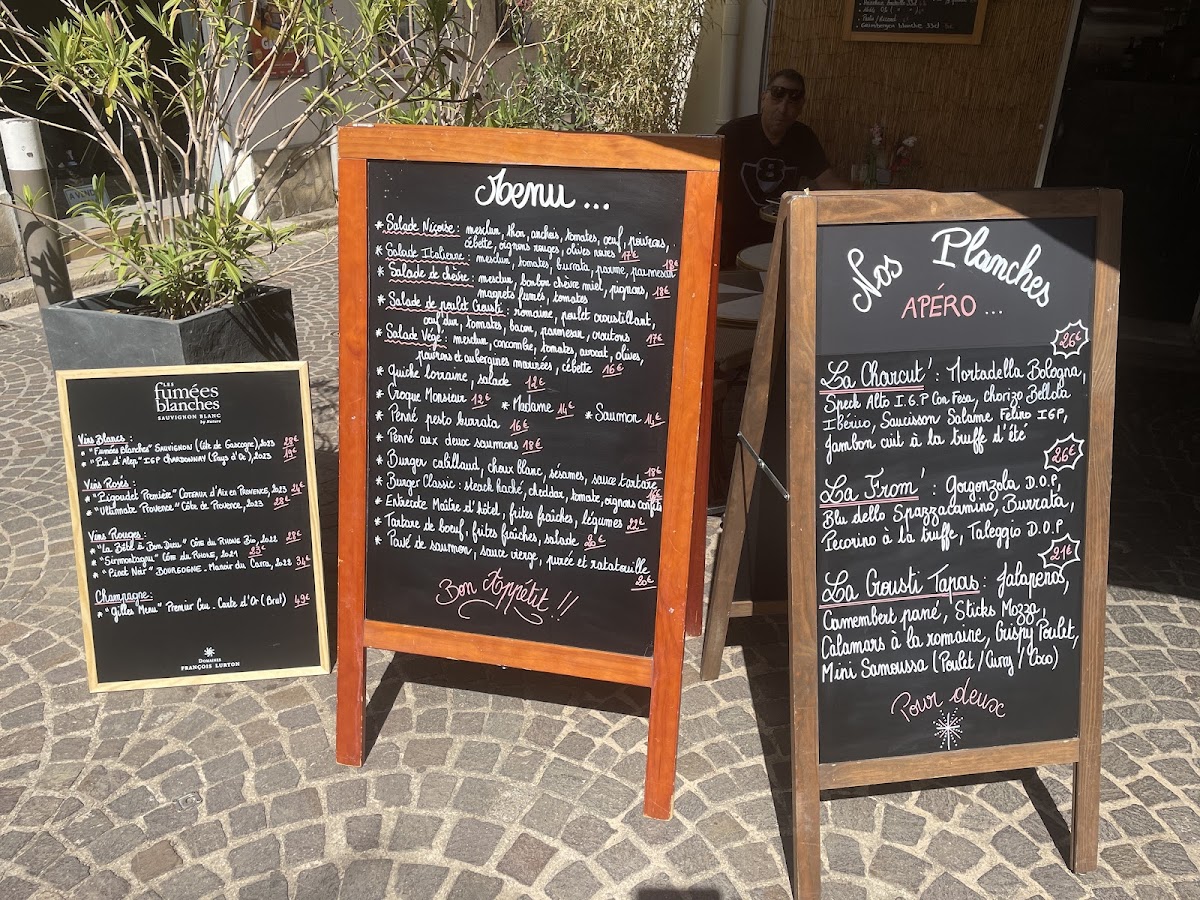 LES
fumées
blanches
SAUVIGNON BLANC
by Nature
Vins Blancs :
* "Fumées Blanches" SAUVIGNON (Côte de Gascogne), 2023 28€
* "Pin d'Alep" IGP CHARDONNAY (Pays d'Oc), 2023 19€
Vins Rosés :
* "Zigoudet Première" COTEAUX D'AIX EN PROVENCE, 2023 24€
* "Ultimate Provence" Côte de PROVENCE, 2023 28€
Vins Rouges :
* "La Bête à Bon Dieu" CÔTE DU RHONE BIO, 2022 28€
* "Sirmontagu" CÔTE DU RHONE, 2021 23€
* "Pinot Noir" BOURGOGNE - Manoir du Carra, 2022 34€
Champagne :
* "Gilles Menu" Premier Cru. Carte d'Or (Brut) 49€
DOMAINES
FRANÇOIS LURTON
Menu ...
* Salade Niçoise : mesclun, thon, anchois, tomates, oeuf, poivrons,
cébette, oignons rouges, olives noires 17€
* Salade Italienne : mesclun, tomates, burrata, parme, parmesan 18€
* Salade de chèvre : mesclun, bonbon chèvre miel, pignons,
magrets fumés, tomates 18€
* Salade de poulet Crousti : romaine, poulet croustillant,
oeuf dur, tomates, bacon, parmesan, croutons 17€
* Salade Végé : mesclun, concombre, tomates, avocat, olives,
poivrons et aubergines marinées, cébette 16€
* Quiche lorraine, salade 12€
* Croque Monsieur 12€ * Madame 14€ * Saumon 14€
* Penné pesto burrata 16€
* Penné aux deux saumons 18€
* Burger cabillaud, choux blanc, sésames, sauce tartare 18€
* Burger Classic : steack haché, cheddar, tomate, oignons confits 16€
* Entrecote Maître d'hôtel, frites fraîches, légumes 22€
* Tartare de boeuf, frites fraîches, salade 20€
* Pavé de saumon, sauce vierge, purée et ratatouille 20€
Bon Appétit !!
Nos Planches
APÉRO ...
26€
La Charcut' : Mortadella Bologna,
Speck Alto I.G.P Con Fesa, chorizo Bellota
Ibérico, Saucisson Salame Felino IGP,
Jambon cuit à la truffe d'été
26€
La From' : Gorgonzola D.O.P,
Blu dello Spazzacamino, Burrata,
Pecorino à la truffe, Taleggio D.O.P
21€
La Crousti Tapas : Jalapenos,
Camembert pané, Sticks Mozza,
Calamars à la romaine, Crispy Poulet,
Mini Samoussa (Poulet / Curry / Coco)
Pour deux
8